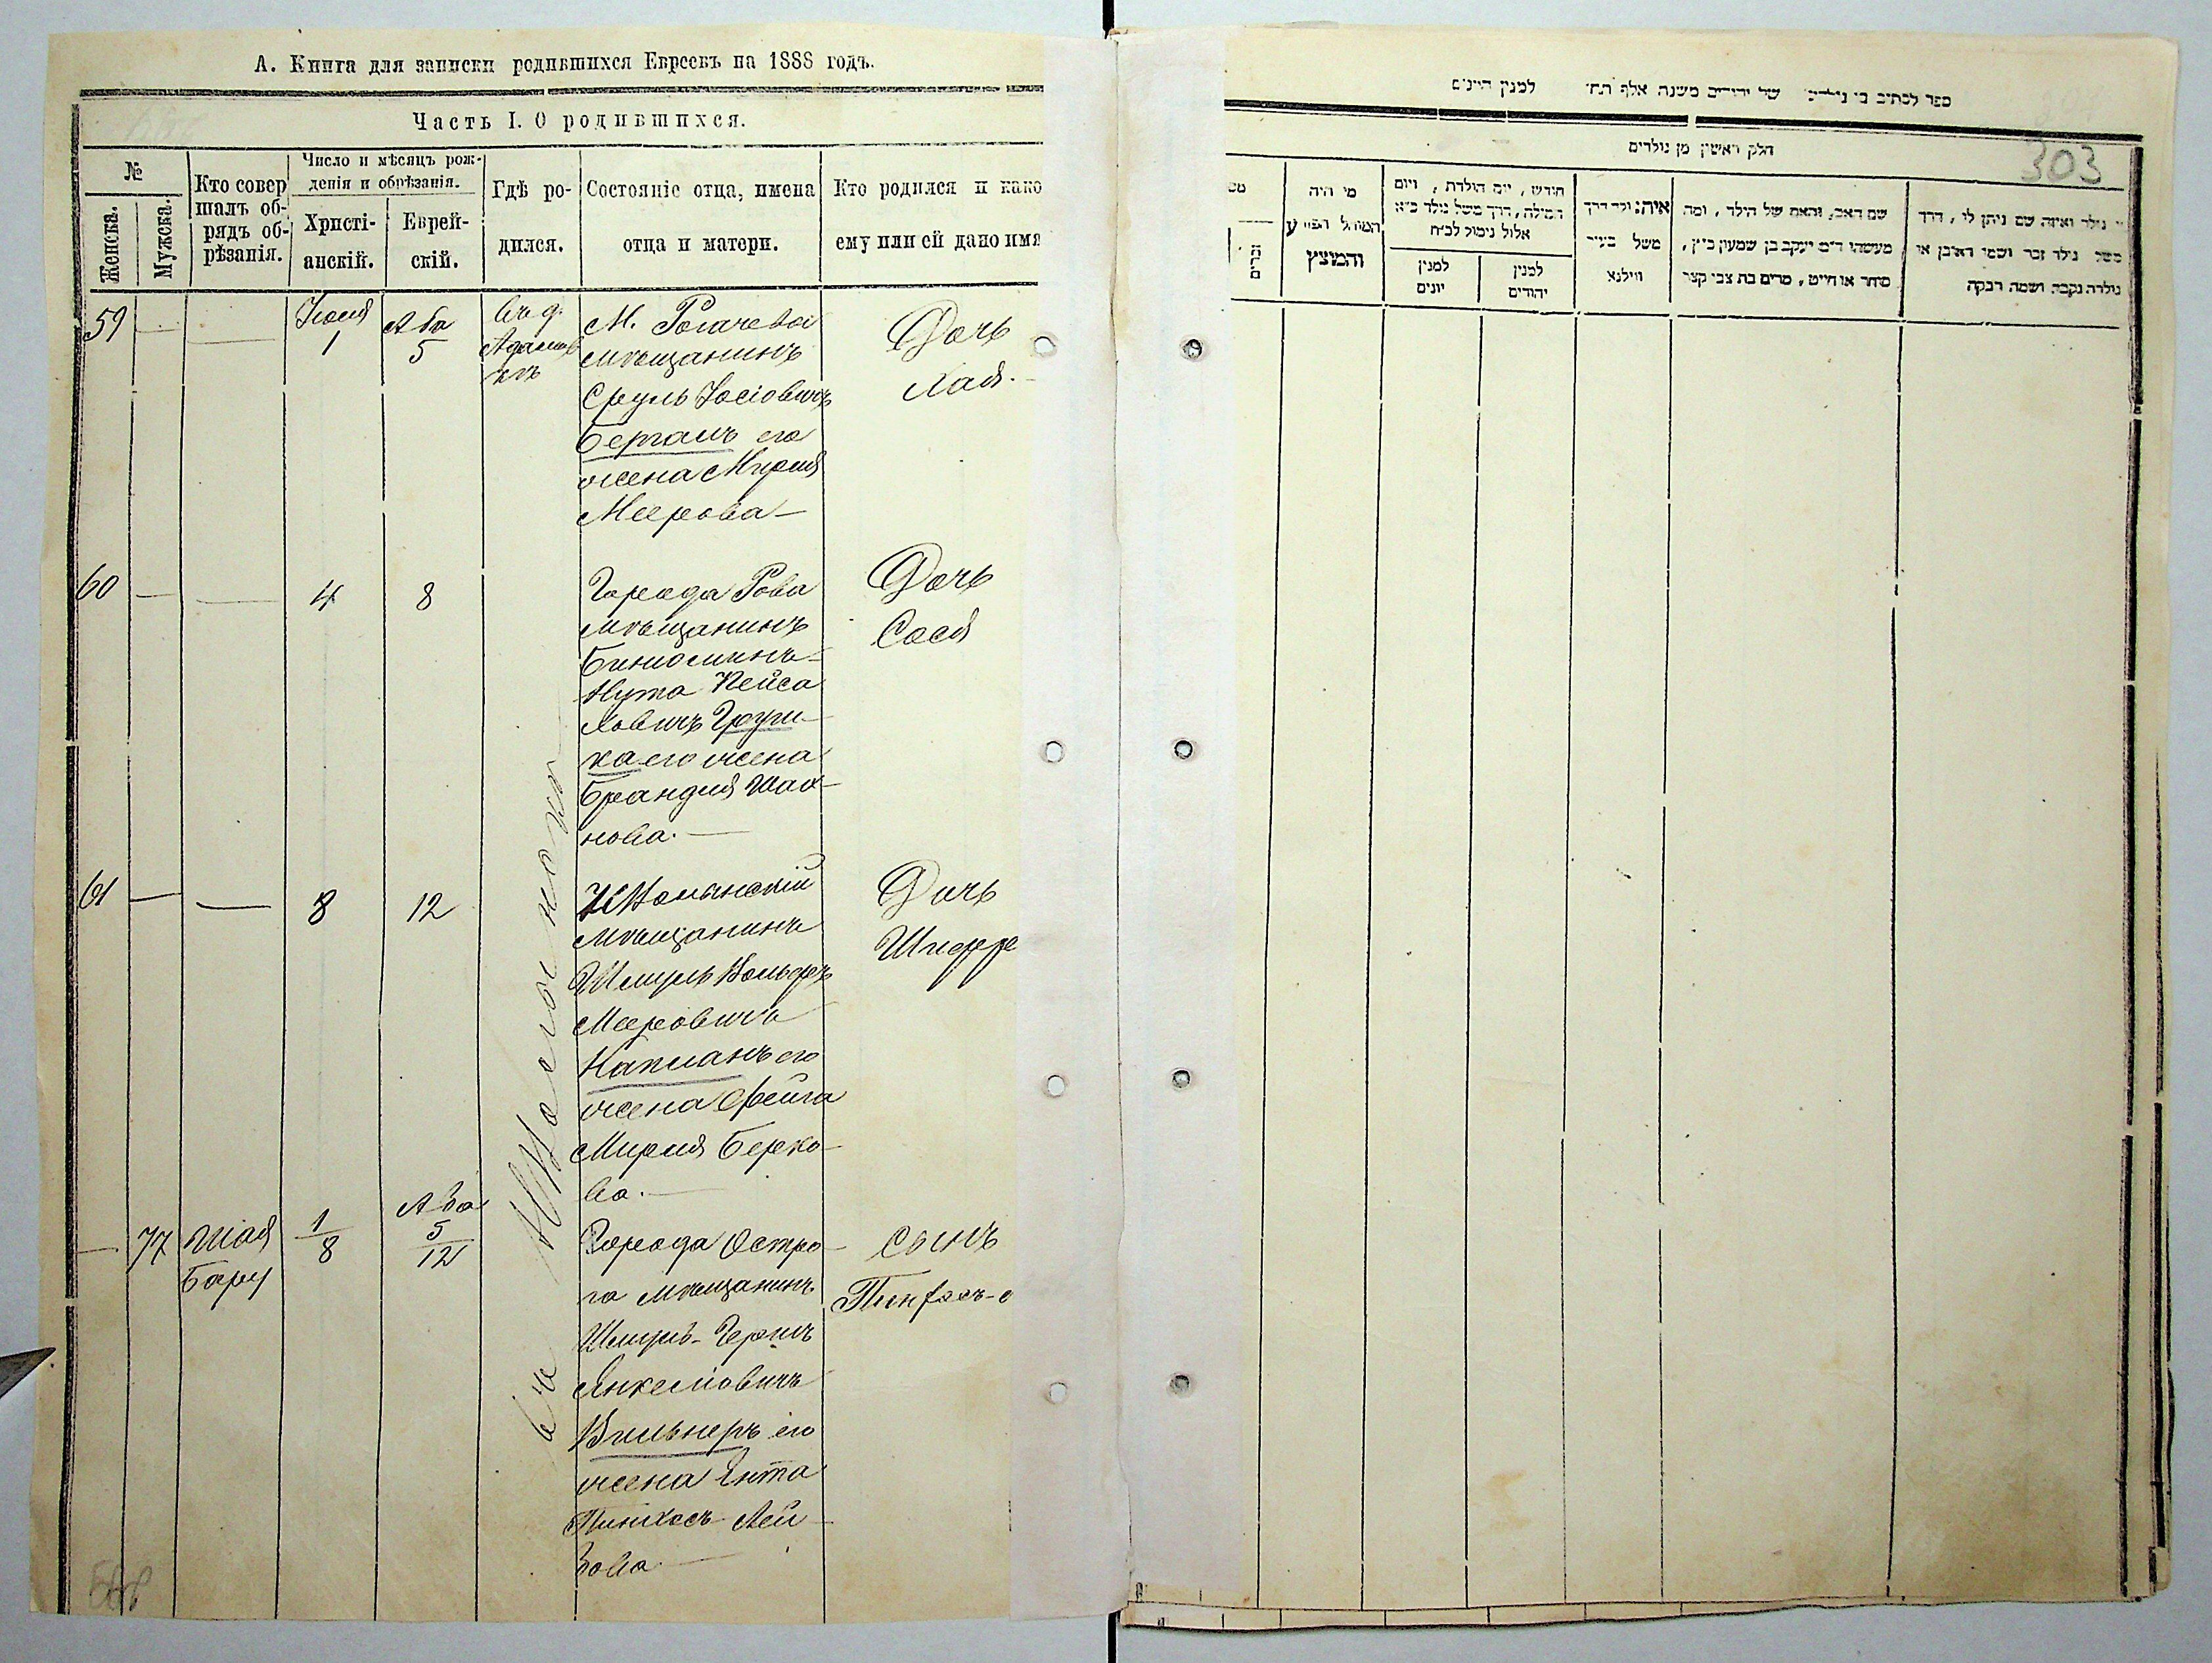 А. Книга для записки родившихся Евреевъ на 1888 годъ.
Часть I. О родившихся.
№
Женска.
Мужска.
Кто совер
шалъ об-
рядъ об-
рѣзанія.
Число и мѣсяцъ рож-
денія и обрѣзанія.
Христі-
анскій.
Еврей-
скій.
Гдѣ ро-
дился.
Состояніе отца, имена
отца и матери.
Кто родился и како
ему или ей дано имя
59
1
Ава
5
въ д.
М. Рогачева
мѣщанинъ
Сруль Іосіовичъ
Бергамъ его
жена Мирля
Меерова
Дочь
Хая.
60
4
8
Города Рова
мѣщанинъ
Биніоминъ-
Нута Пейса
ховичъ
его жена
Брандля Шах-
нова.
Дочь
Сося
61
8
12
мѣщанинъ
Шмуль Вольфъ
Мееровичъ
Капланъ его
жена Фейга
Мирля Берко-
ва.
Дочь
Шпрре
въ
77
Шая
Бару
1
8
Ава
5
12
Города Остро-
га мѣщанинъ
Шмуль-Гершъ
Янкеліовичъ
Вильнеръ его
жена Ента
Пинхосъ Лей-
зова
сынъ
ספר לכתיב בו נולדים של יהודים משנה אלף תת׳ למנין היונים
303
חלק ראשון מן נולדים
מי היה
המוהל הפורע
והמוצץ
זכרים
חודש, יום הולדת, ויום
המילה, דרך משל נולד כ״א
אלול נימול לכ״ח
למנין
יונים
למנין
יהודים
איה: ולד דרך
משל בעיר
ווילנא
שם האב, והאם של הילד, ומה
מעשהו ד״מ יעקב בן שמעון כ״ץ,
סוחר או חייט, מרים בת צבי קצר
מי נולד ואיזה שם ניתן לו, דרך
משל נולד זכר ושמו ראובן או
נולדה נקבה ושמה רבקה